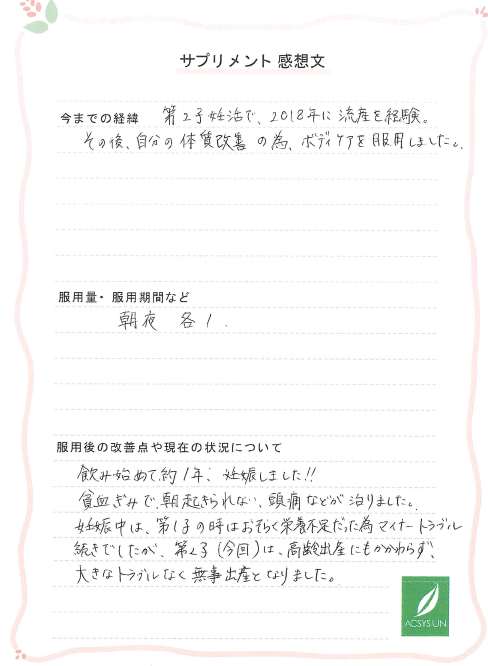 サプリメント 感想文
今までの経緯 第2子妊活で、2018年に流産を経験。
その後、自分の体質改善の為、ボディケアを服用しました。
服用量・服用期間など
朝夜 各1.
服用後の改善点や現在の状況について
飲み始めて約1年、妊娠しました!!
貧血ぎみで、朝起きられない、頭痛などが治りました。
妊娠中は、第1子の時はおそらく栄養不足だった為マイナートラブル
続きでしたが、第2子(今回)は、高齢出産にもかかわらず、
大きなトラブルなく無事出産となりました。
ACSYSUN